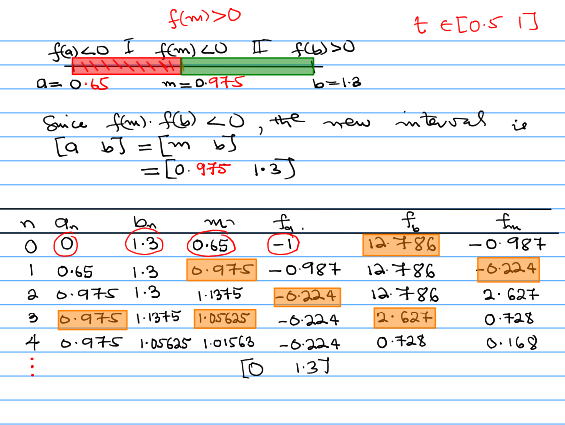 f(m)>0
t ∈ [0.5 1]
f(a)<0 I f(m)<0 II f(b)>0
a= 0.65 m=0.975 b=1.3
Since f(m)·f(b) <0, the new interval is
[a b] = [m b]
= [0.975 1.3]
n aₙ bₙ mₙ fₐ fb fm
0 0 1.3 0.65 -1 12.786 -0.987
1 0.65 1.3 0.975 -0.987 12.786 -0.224
2 0.975 1.3 1.1375 -0.224 12.786 2.627
3 0.975 1.1375 1.05625 -0.224 2.627 0.728
4 0.975 1.05625 1.01563 -0.224 0.728 0.168
⋮ [0 1.3]